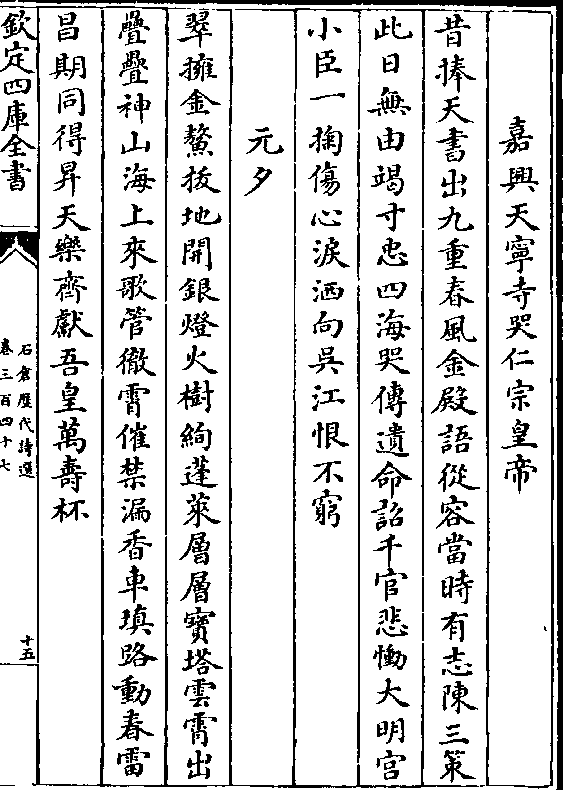 嘉興天寧寺哭仁宗皇帝
昔捧天書出九重春風金殿語從容當時有志陳三策
此日無由竭寸忠四海哭傳遺命詔千官悲慟大明宮
小臣一掬傷心淚洒向吳江恨不窮
元夕
翠擁金鰲拔地開銀燈火樹絢蓬萊層層寳塔雲霄出
疊疊神山海上來歌管徹霄催禁漏香車瑱路動春雷
昌期同得昇天樂齊獻吾皇萬壽杯
欽定四庫全書
石倉歷代詩選
卷三百四十七
十五